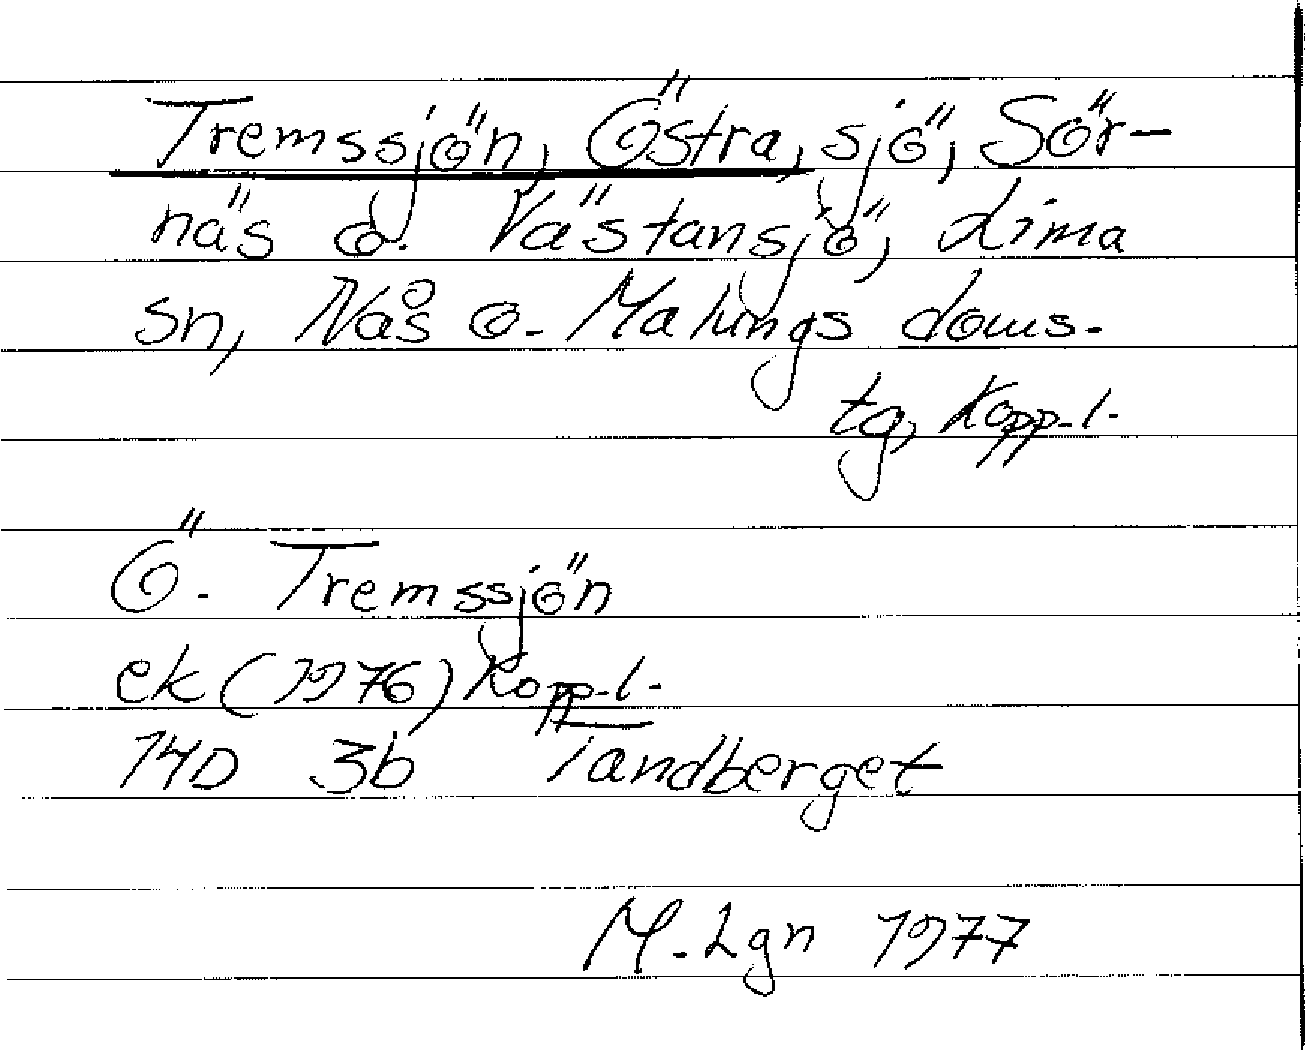 Tremssjön, Östra, sjö, Sör-
näs o. Västansjö, Lima
sn, Nås o. Malungs doms.
tg, Kopp.l.
Ö. Tremssjön
ek (1976) Kopp.l.
14D 3b Tandberget
M. Lgn 1977